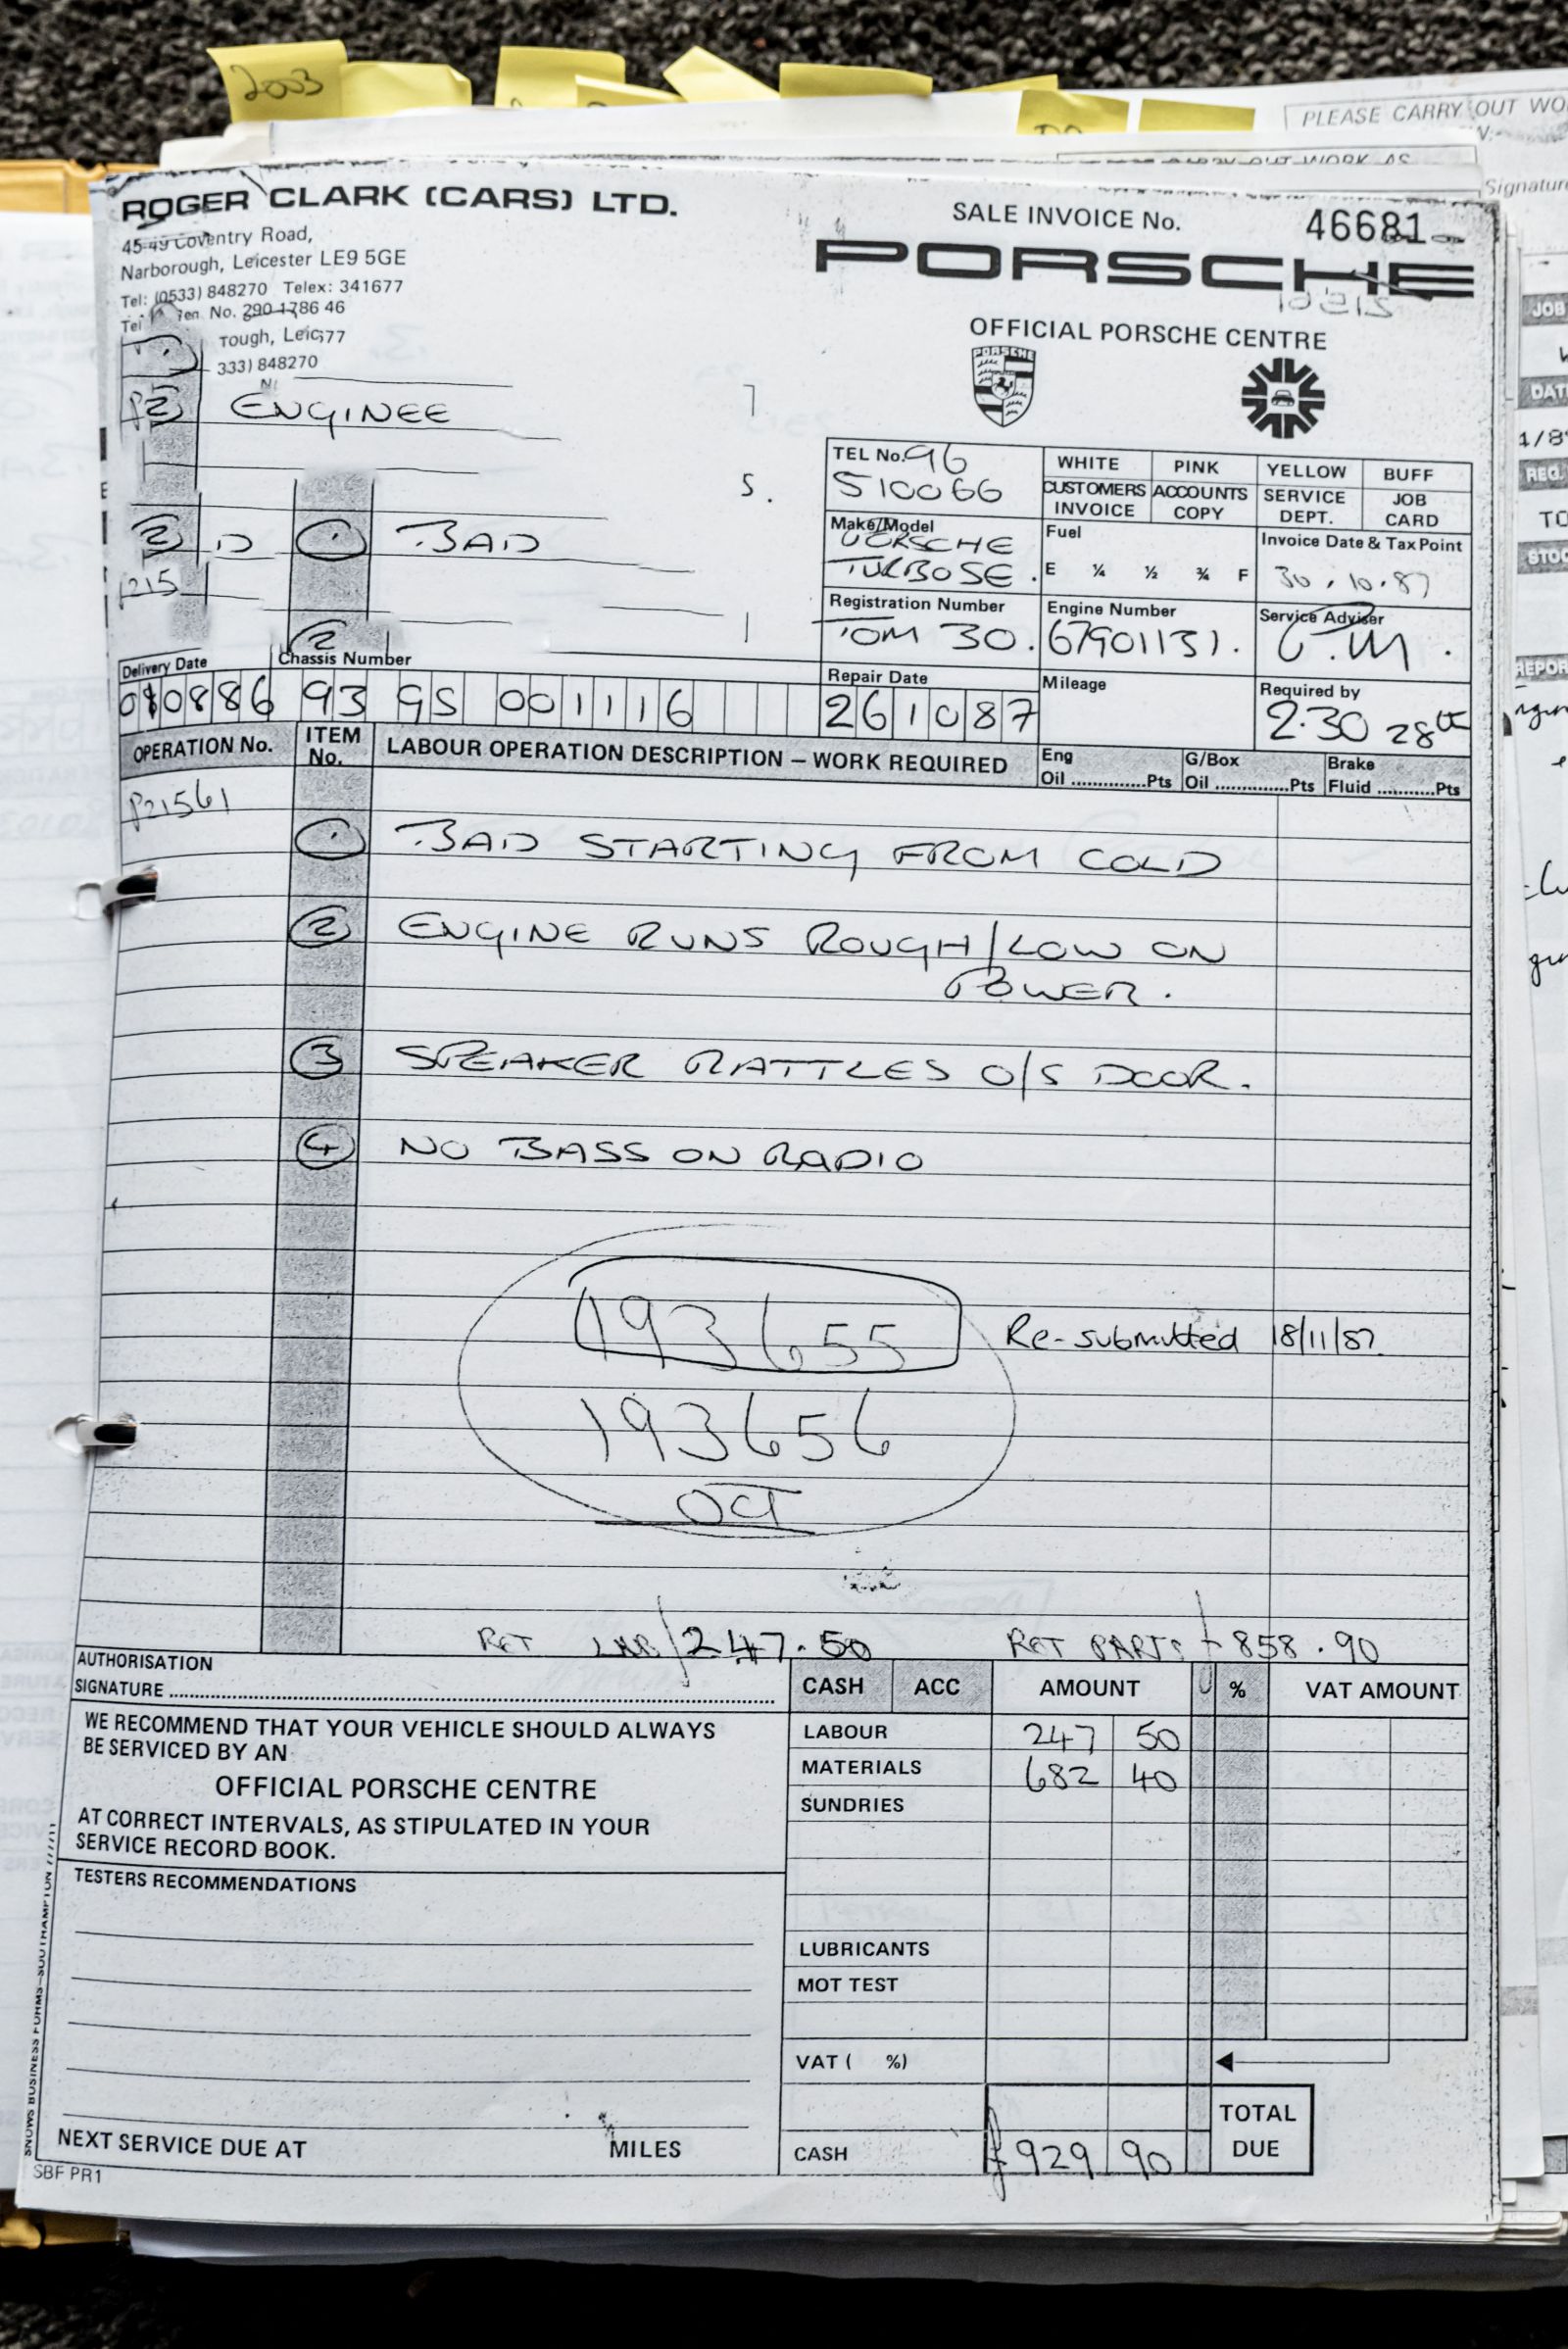 2003
PLEASE CARRY OUT WO
Signature
ROGER CLARK (CARS) LTD.
45-49 Coventry Road,
Narborough, Leicester LE9 5GE
Tel: (0533) 848270 Telex: 341677
No. 290 1786 46
333) 848270
SALE INVOICE No. 46681
PORSCHE
OFFICIAL PORSCHE CENTRE
PORSCHE
ENGINEE
BAD
TEL No. 96
510066
WHITE PINK YELLOW BUFF
CUSTOMERS INVOICE ACCOUNTS COPY SERVICE DEPT. JOB CARD
Make/Model
PORSCHE
TURBO SE.
Fuel
E ¼ ½ ¾ F
Invoice Date & Tax Point
30.10.87
Registration Number
TOM 30.
Engine Number
67901131.
Service Adviser
Delivery Date
080886
Chassis Number
93 GS 001116
Repair Date
261087
Mileage
Required by
2.30 28th
OPERATION No. ITEM No. LABOUR OPERATION DESCRIPTION – WORK REQUIRED
Eng Oil ..............Pts G/Box Oil ..............Pts Brake Fluid ...........Pts
P21561
1 BAD STARTING FROM COLD
2 ENGINE RUNS ROUGH/LOW ON
POWER.
3 SPEAKER RATTLES O/S DOOR.
4 NO BASS ON RADIO
193655 Re-submitted 18/11/87
193656
OCT
RET LAB 247.50 RET PARTS 858.90
AUTHORISATION
SIGNATURE
CASH ACC AMOUNT % VAT AMOUNT
WE RECOMMEND THAT YOUR VEHICLE SHOULD ALWAYS
BE SERVICED BY AN
OFFICIAL PORSCHE CENTRE
AT CORRECT INTERVALS, AS STIPULATED IN YOUR
SERVICE RECORD BOOK.
LABOUR 247 50
MATERIALS 682 40
SUNDRIES
TESTERS RECOMMENDATIONS
LUBRICANTS
MOT TEST
VAT ( %)
TOTAL DUE
CASH £929 90
NEXT SERVICE DUE AT MILES
SBF PR1
SNOWS BUSINESS FORMS–SOUTHAMPTON